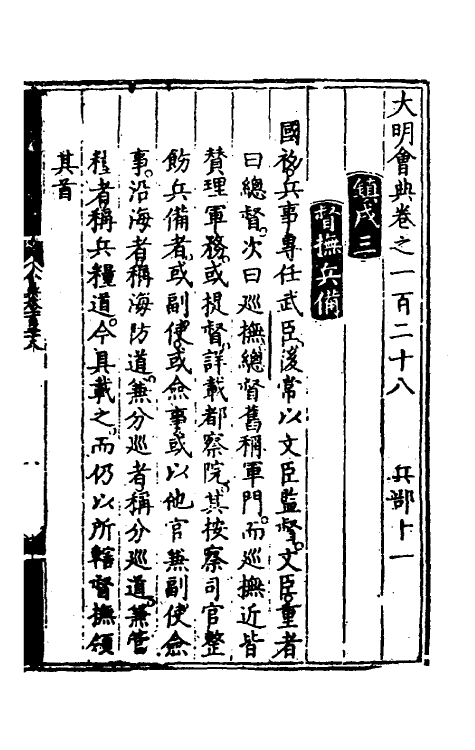 大明會典卷之一百二十八　兵部十一
鎮戍三
督撫兵備
國初兵事專任武臣後常以文臣監督文臣重者
曰總督次曰巡撫總督舊稱軍門而巡撫近皆
賛理軍務或提督詳載都察院其按察司官整
飭兵備者或副使或僉事或以他官兼副使僉
事沿海者稱海防道兼分巡者稱分巡道兼管
糧者稱兵糧道今具載之而仍以所轄督撫領
其首